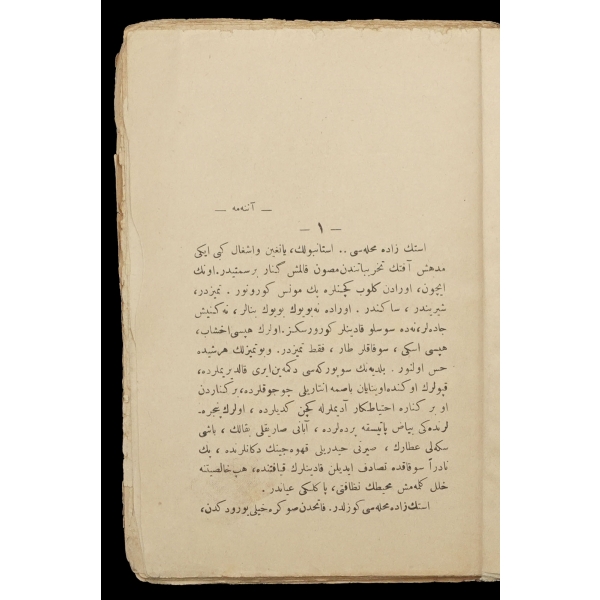 — آننه‌مه —
— ١ —
استك زاده محله‌سی .. استانبولك، یانغین واشغال كبی ایكی
مدهش آفتك تخریباتندن مصون قالمش كنار بر سمتیدر. اونك
ایچون، اورادن كلوب كچنلره پك مونس كورونور . تمیزدر،
شیریندر ، ساكندر . اوراده نه بویوك بویوك بنالر ، نه كنیش
جاده‌لر، نه‌ده سوسلو قادینلر كورورسكز. اولرك هپسی اخشاب،
هپسی اسكی ، سوقاقلر طار ، فقط تمیزدر. وبو تمیزلك هرشیده
حس اولنور . بلدیه‌نك سوپوركه‌سی دكمه‌ین ایری قالدیریملرده،
قپولرك اوكنده اوینایان باصمه انتاریلی چوجوقلرده، بر كناردن
او بر كناره احتیاطكار آدیملرله كچن كدیلرده ، اولرك پنجره‌-
لرنده‌كی بیاض پاتیسقه پرده‌لرده ، آبانی صاریقلی بقالك ، باشی
سكه‌لی عطارك ، صیرتی حیدریلی قهوه‌جینك دكانلرنده ، پك
نادراً سوقاقده تصادف ایدیلن قادینلرك قیافتنده، هپ خالصیتنه
خلل كلمه‌مش محیطك نظافتی، پاكلكی عیاندر .
استك زاده محله‌سی كوزلدر. فاتحدن صوكره خیلی یورودكدن،